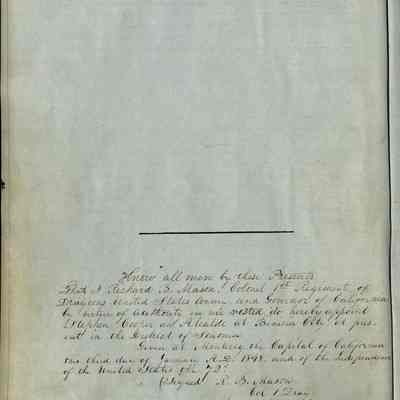 "Know" all men by these Presents
That I Richard B. Mason, Colonel 1st Regiment of
Dragoons United States Army and Governor of California
by virtue of authority in me vested, do hereby appoint
Stephen Cooper as Alcalde at Benicia City, at pres-
ent in the District of Sonoma.
Given at Monterey the Capital of California
this third day of January A.D. 1848 and of the Independence
of the United States the 72d
(Signed) R. B. Mason
Col 1 Drag